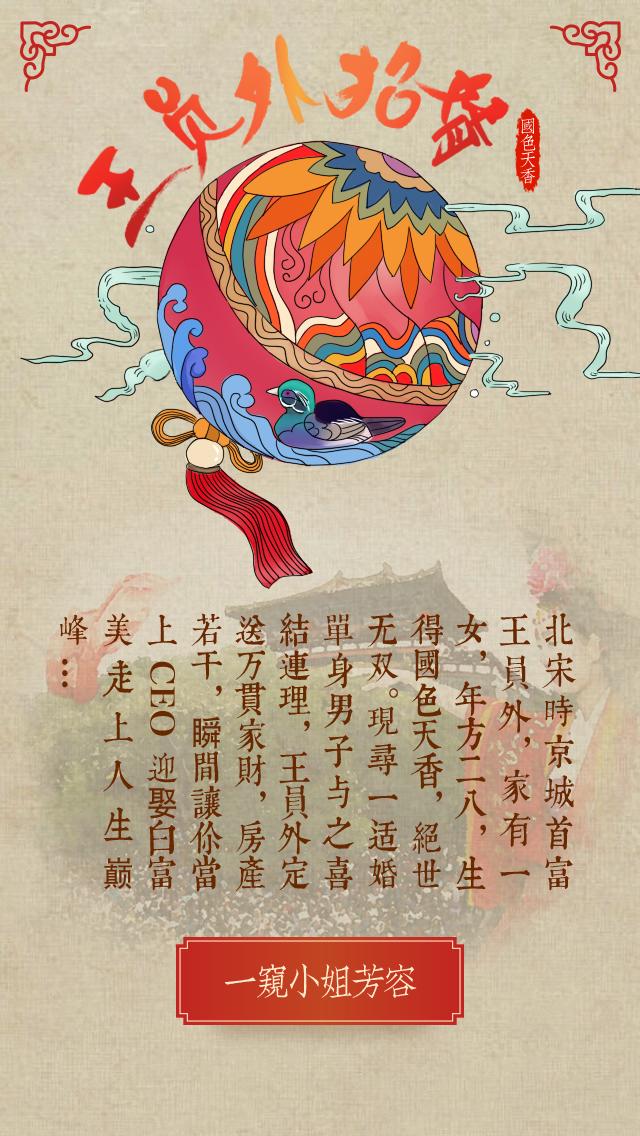 王员外招婚
國色天香
北宋時京城首富
王員外，家有一
女，年方二八，生
得國色天香，絕世
无双。現尋一适婚
單身男子与之喜
結連理，王員外定
送万貫家財，房產
若干，瞬間讓你當
上 CEO 迎娶白富
美走上人生巅
峰…
一窺小姐芳容